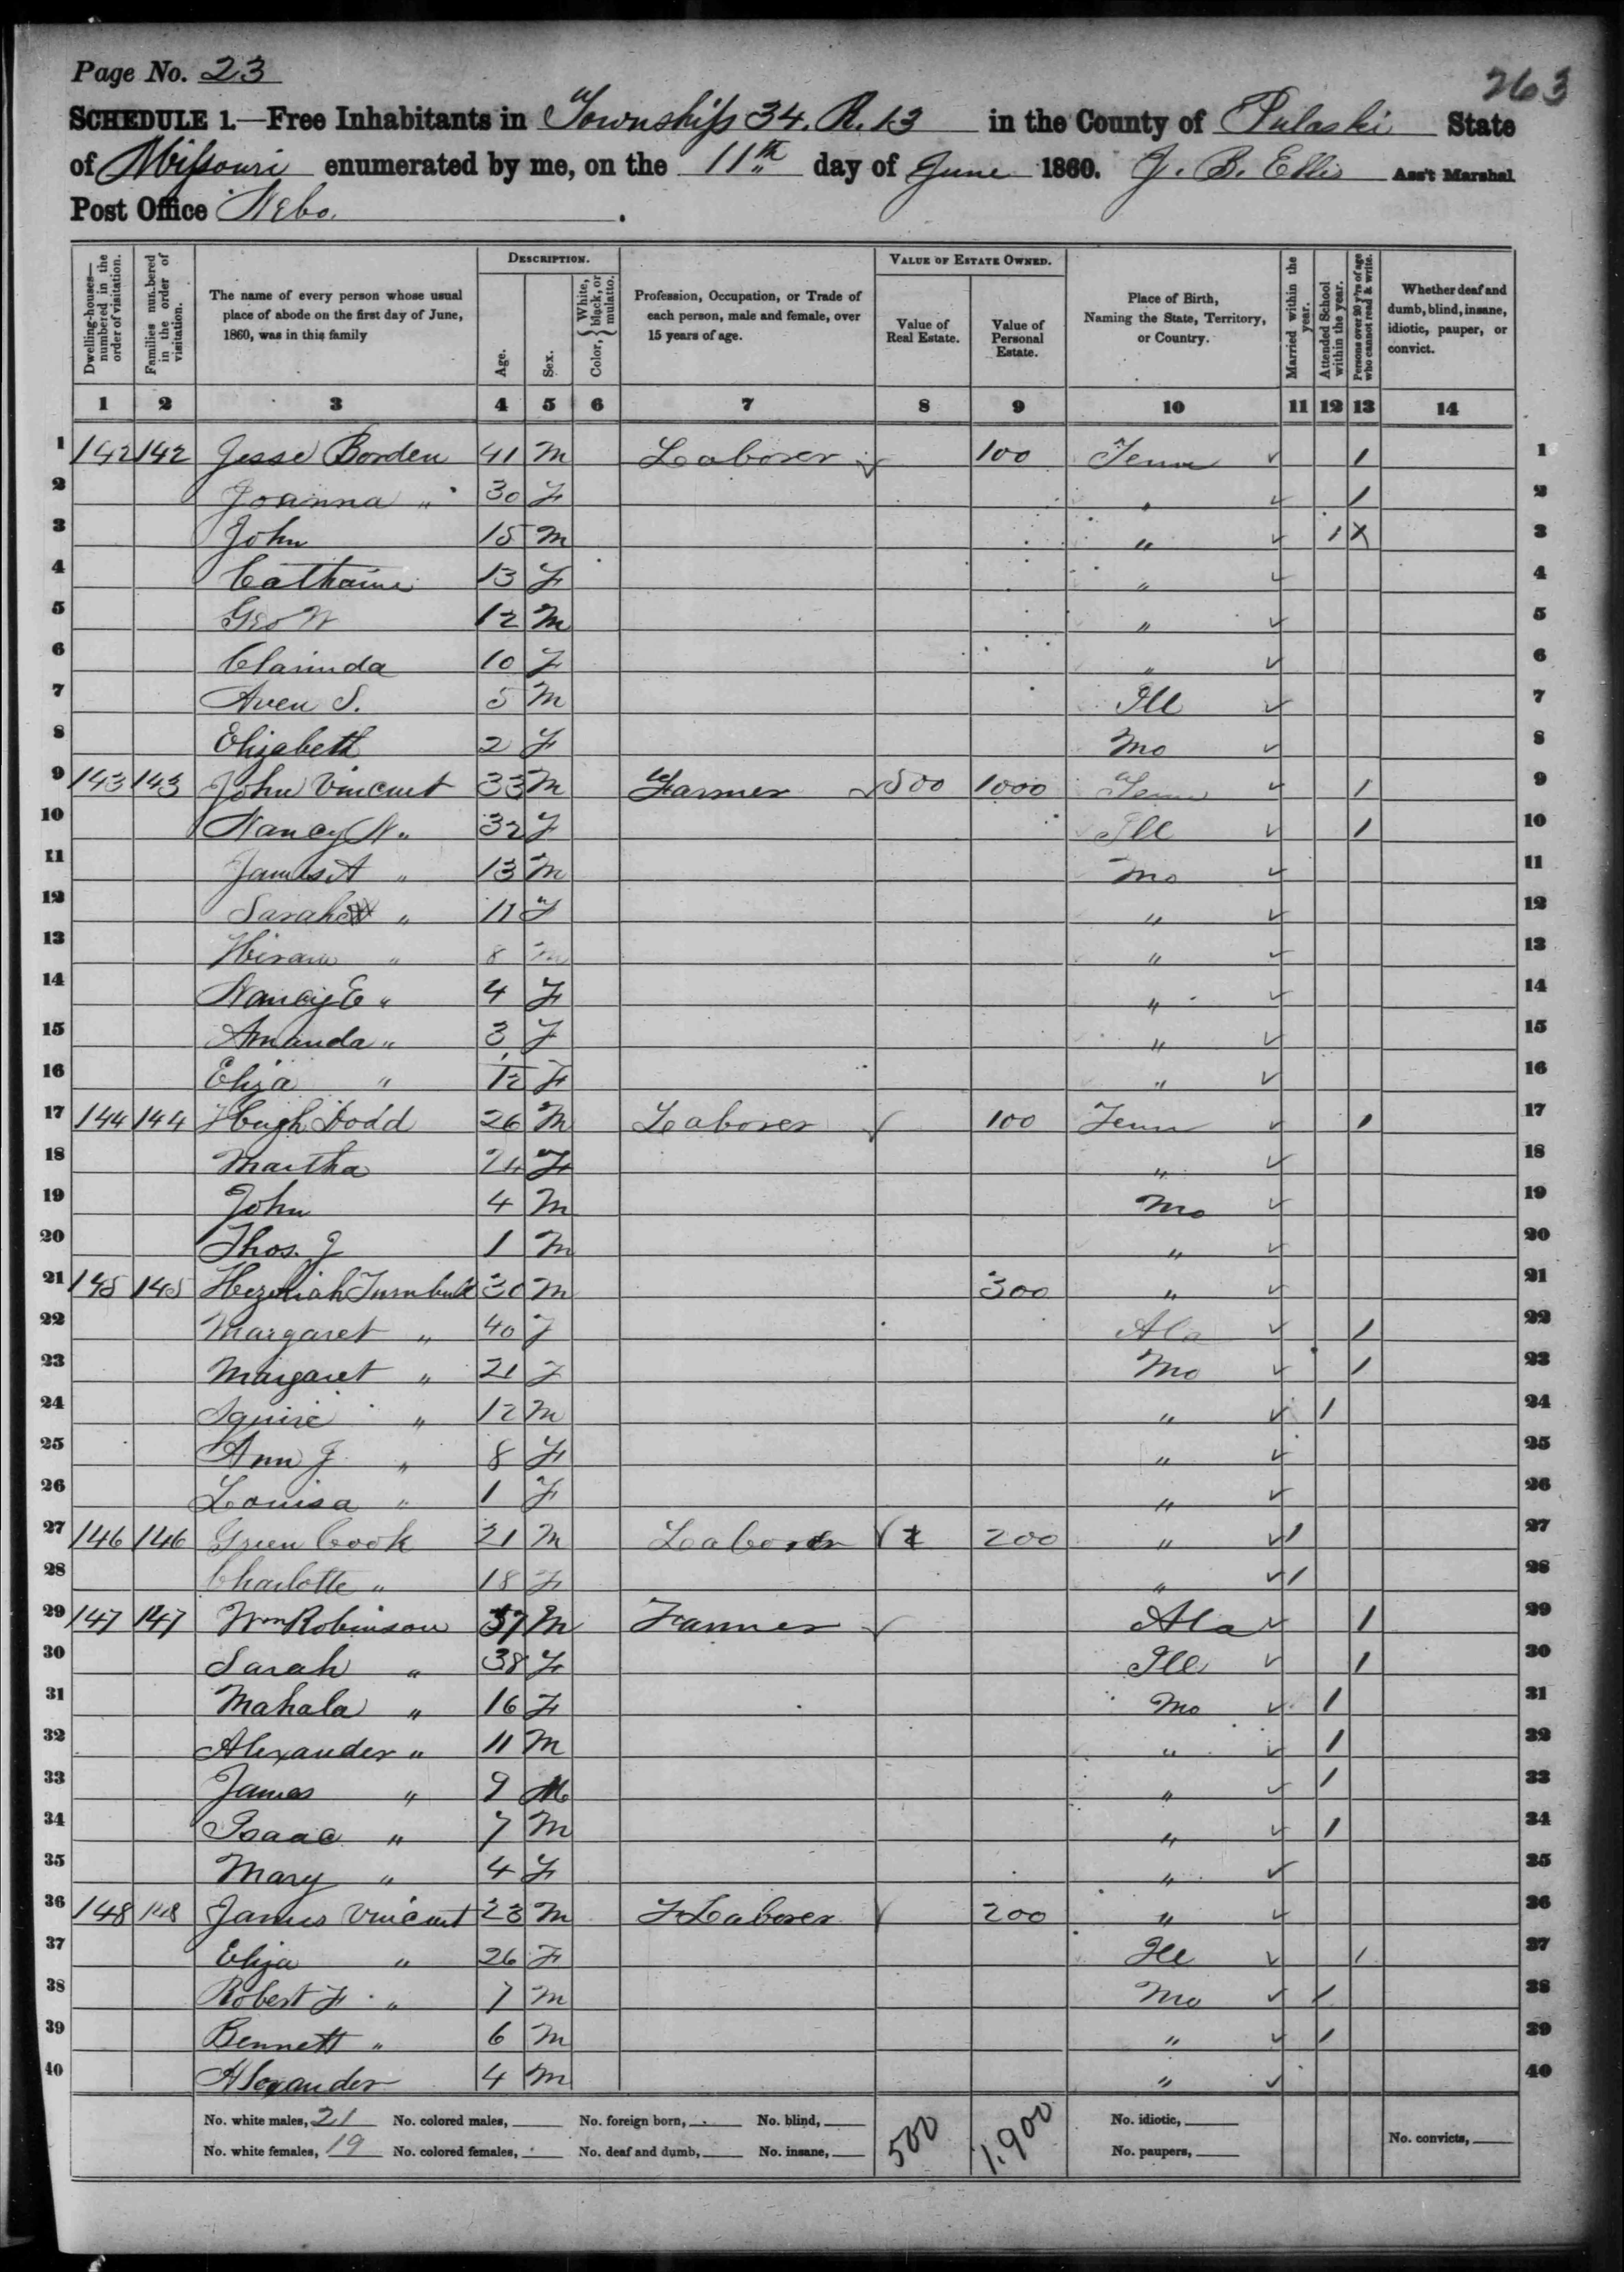 Page No. 23
263
SCHEDULE 1.—Free Inhabitants in Township 34. R. 13 in the County of Pulaski State
of Missouri enumerated by me, on the 11th day of June 1860. J. B. Ellis Ass't Marshal
Post Office Nebo.
Dwelling-houses—numbered in the order of visitation.
Families numbered in the order of visitation.
The name of every person whose usual place of abode on the first day of June, 1860, was in this family
DESCRIPTION.
Age.
Sex.
Color, { White, black, or mulatto.
Profession, Occupation, or Trade of each person, male and female, over 15 years of age.
VALUE OF ESTATE OWNED.
Value of Real Estate.
Value of Personal Estate.
Place of Birth, Naming the State, Territory, or Country.
Married within the year.
Attended School within the year.
Persons over 20 y'rs of age who cannot read & write.
Whether deaf and dumb, blind, insane, idiotic, pauper, or convict.
1 2 3 4 5 6 7 8 9 10 11 12 13 14
1 142 142 Jesse Borden 41 M Laborer ✓ 100 Tenn ✓ 1 1
2 Joanna " 30 F " ✓ 1 2
3 John 15 M " ✓ 1 X 3
4 Catharine 13 F " ✓ 4
5 Geo W 12 M " ✓ 5
6 Clarinda 10 F " ✓ 6
7 Aven S. 5 M Ill ✓ 7
8 Elizabeth 2 F Mo ✓ 8
9 143 143 John Vincent 33 M Farmer ✓ 500 1000 Tenn ✓ 1 9
10 Nancy N " 32 F Ill ✓ 1 10
11 James A " 13 M Mo ✓ 11
12 Sarah " 11 F " ✓ 12
13 Hiram " 8 M " ✓ 13
14 Nancy E " 4 F " ✓ 14
15 Amanda " 3 F " ✓ 15
16 Eliza " 1/12 F " ✓ 16
17 144 144 Hugh Dodd 26 M Laborer ✓ 100 Tenn ✓ 1 17
18 Martha 24 F " ✓ 18
19 John 4 M Mo ✓ 19
20 Thos. J 1 M " ✓ 20
21 145 145 Hezekiah Turnbull 30 M 300 " ✓ 21
22 Margaret " 40 F Ala ✓ 1 22
23 Margaret " 21 F Mo ✓ 1 23
24 Squire " 12 M " ✓ 1 24
25 Ann J " 8 F " ✓ 25
26 Louisa " 1 F " ✓ 26
27 146 146 Green Cook 21 M Laborer ✓ 200 " ✓ 1 27
28 Charlotte " 18 F " ✓ 1 28
29 147 147 Wm Robinson 37 M Farmer ✓ Ala ✓ 1 29
30 Sarah " 38 F Ill ✓ 1 30
31 Mahala " 16 F Mo ✓ 1 31
32 Alexander " 11 M " ✓ 1 32
33 James " 9 M " ✓ 1 33
34 Isaac " 7 M " ✓ 1 34
35 Mary " 4 F " ✓ 35
36 148 148 James Vincent 23 M F Laborer ✓ 200 " ✓ 36
37 Eliza " 26 F Ill ✓ 1 37
38 Robert F " 7 M Mo ✓ 1 38
39 Bennett " 6 M " ✓ 1 39
40 Alexander 4 M " ✓ 40
No. white males, 21 No. colored males, No. foreign born, No. blind, 500 1,900 No. idiotic,
No. white females, 19 No. colored females, No. deaf and dumb, No. insane, No. paupers, No. convicts,